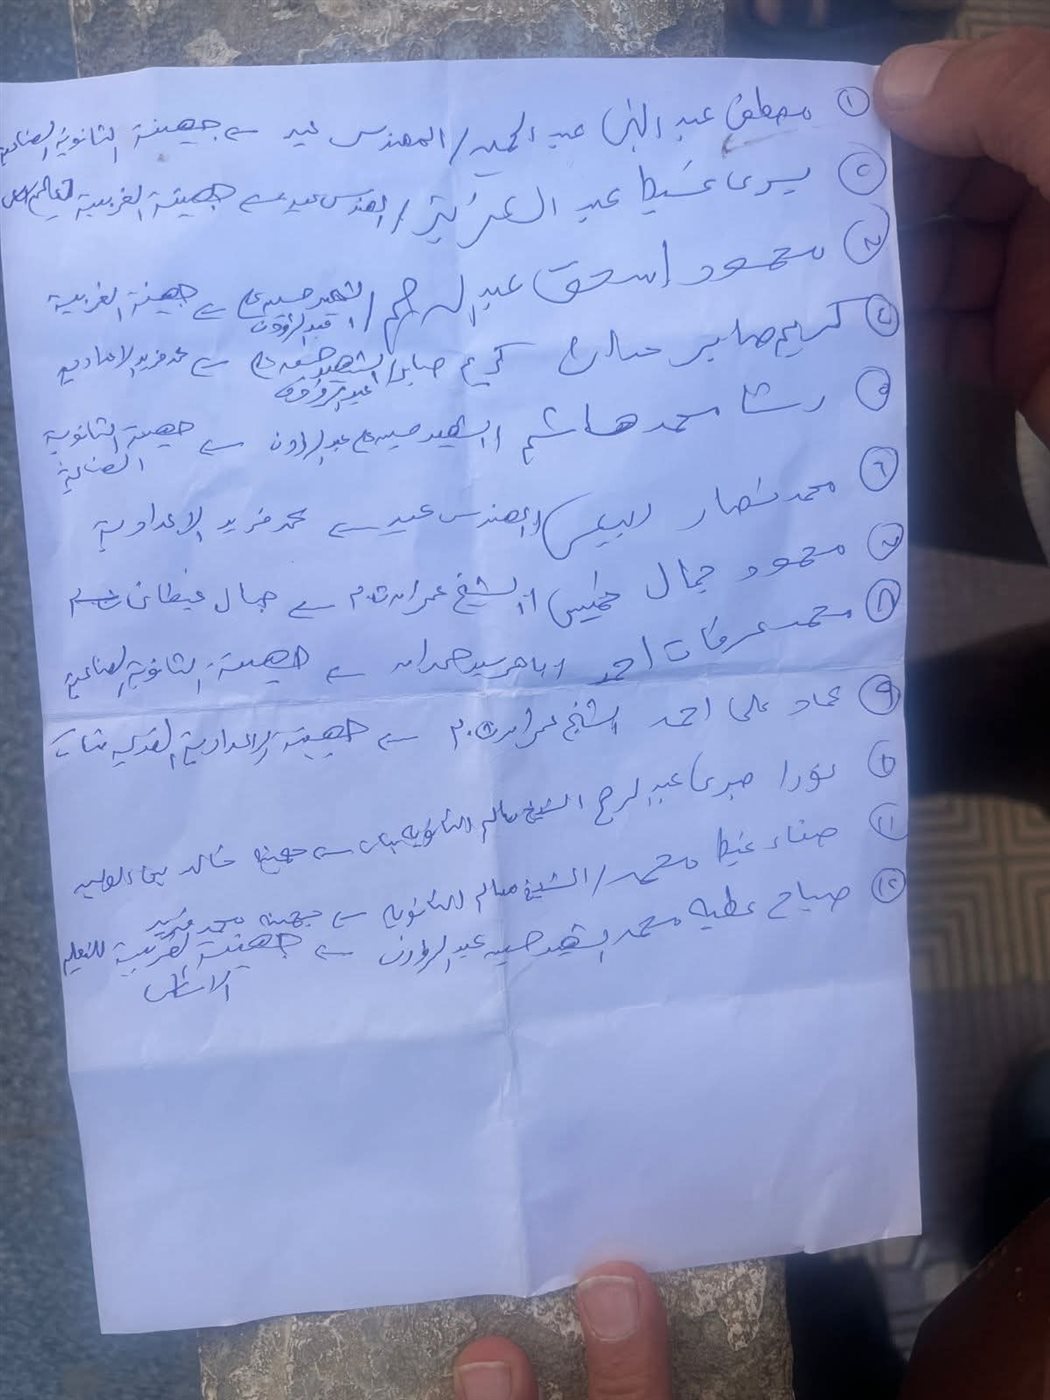 ١ مصطفى عبد النبى عبد الحميد / المهندس عيد ــ جهينة الثانوية الصناعية
٢ يسرى غيط عبد العزيز / المهندس عيد ــ جهينة الغربية
٣ محمود اسحق عبد الرحيم / الشهيد حسين على عبد الرؤوف ــ جهينة الغربية
٤ كريم صابر كريم صابر / الشهيد على عبد الرؤوف ــ محمد فريد الاعدادية
٥ رشا محمد هاشم الشهيد حسين على عبد الرؤوف ــ جهينة الثانوية
الصناعية
٦ محمد نصار / المهندس عيد ــ محمد فريد الاعدادية
٧ محمود جمال خميس / الشيخ عمران ــ جمال غيطانى
٨ محمد عرفات احمد ــ جهينة الثانوية الصناعية
٩ عماد على احمد الشيخ عمران ــ جهينة الاعدادية القديمة بنات
١٠ نورا صبرى عبد الرحيم الشيخ سالم الثانوية بنات ــ جهينة خالد
١١ صفاء غيط محمد / الشيخ سالم الثانوية ــ جهينة محمد فريد
١٢ صباح عطيه محمد الشهيد حسين عبد الرؤوف ــ جهينة الغربية للتعليم
الاساسى